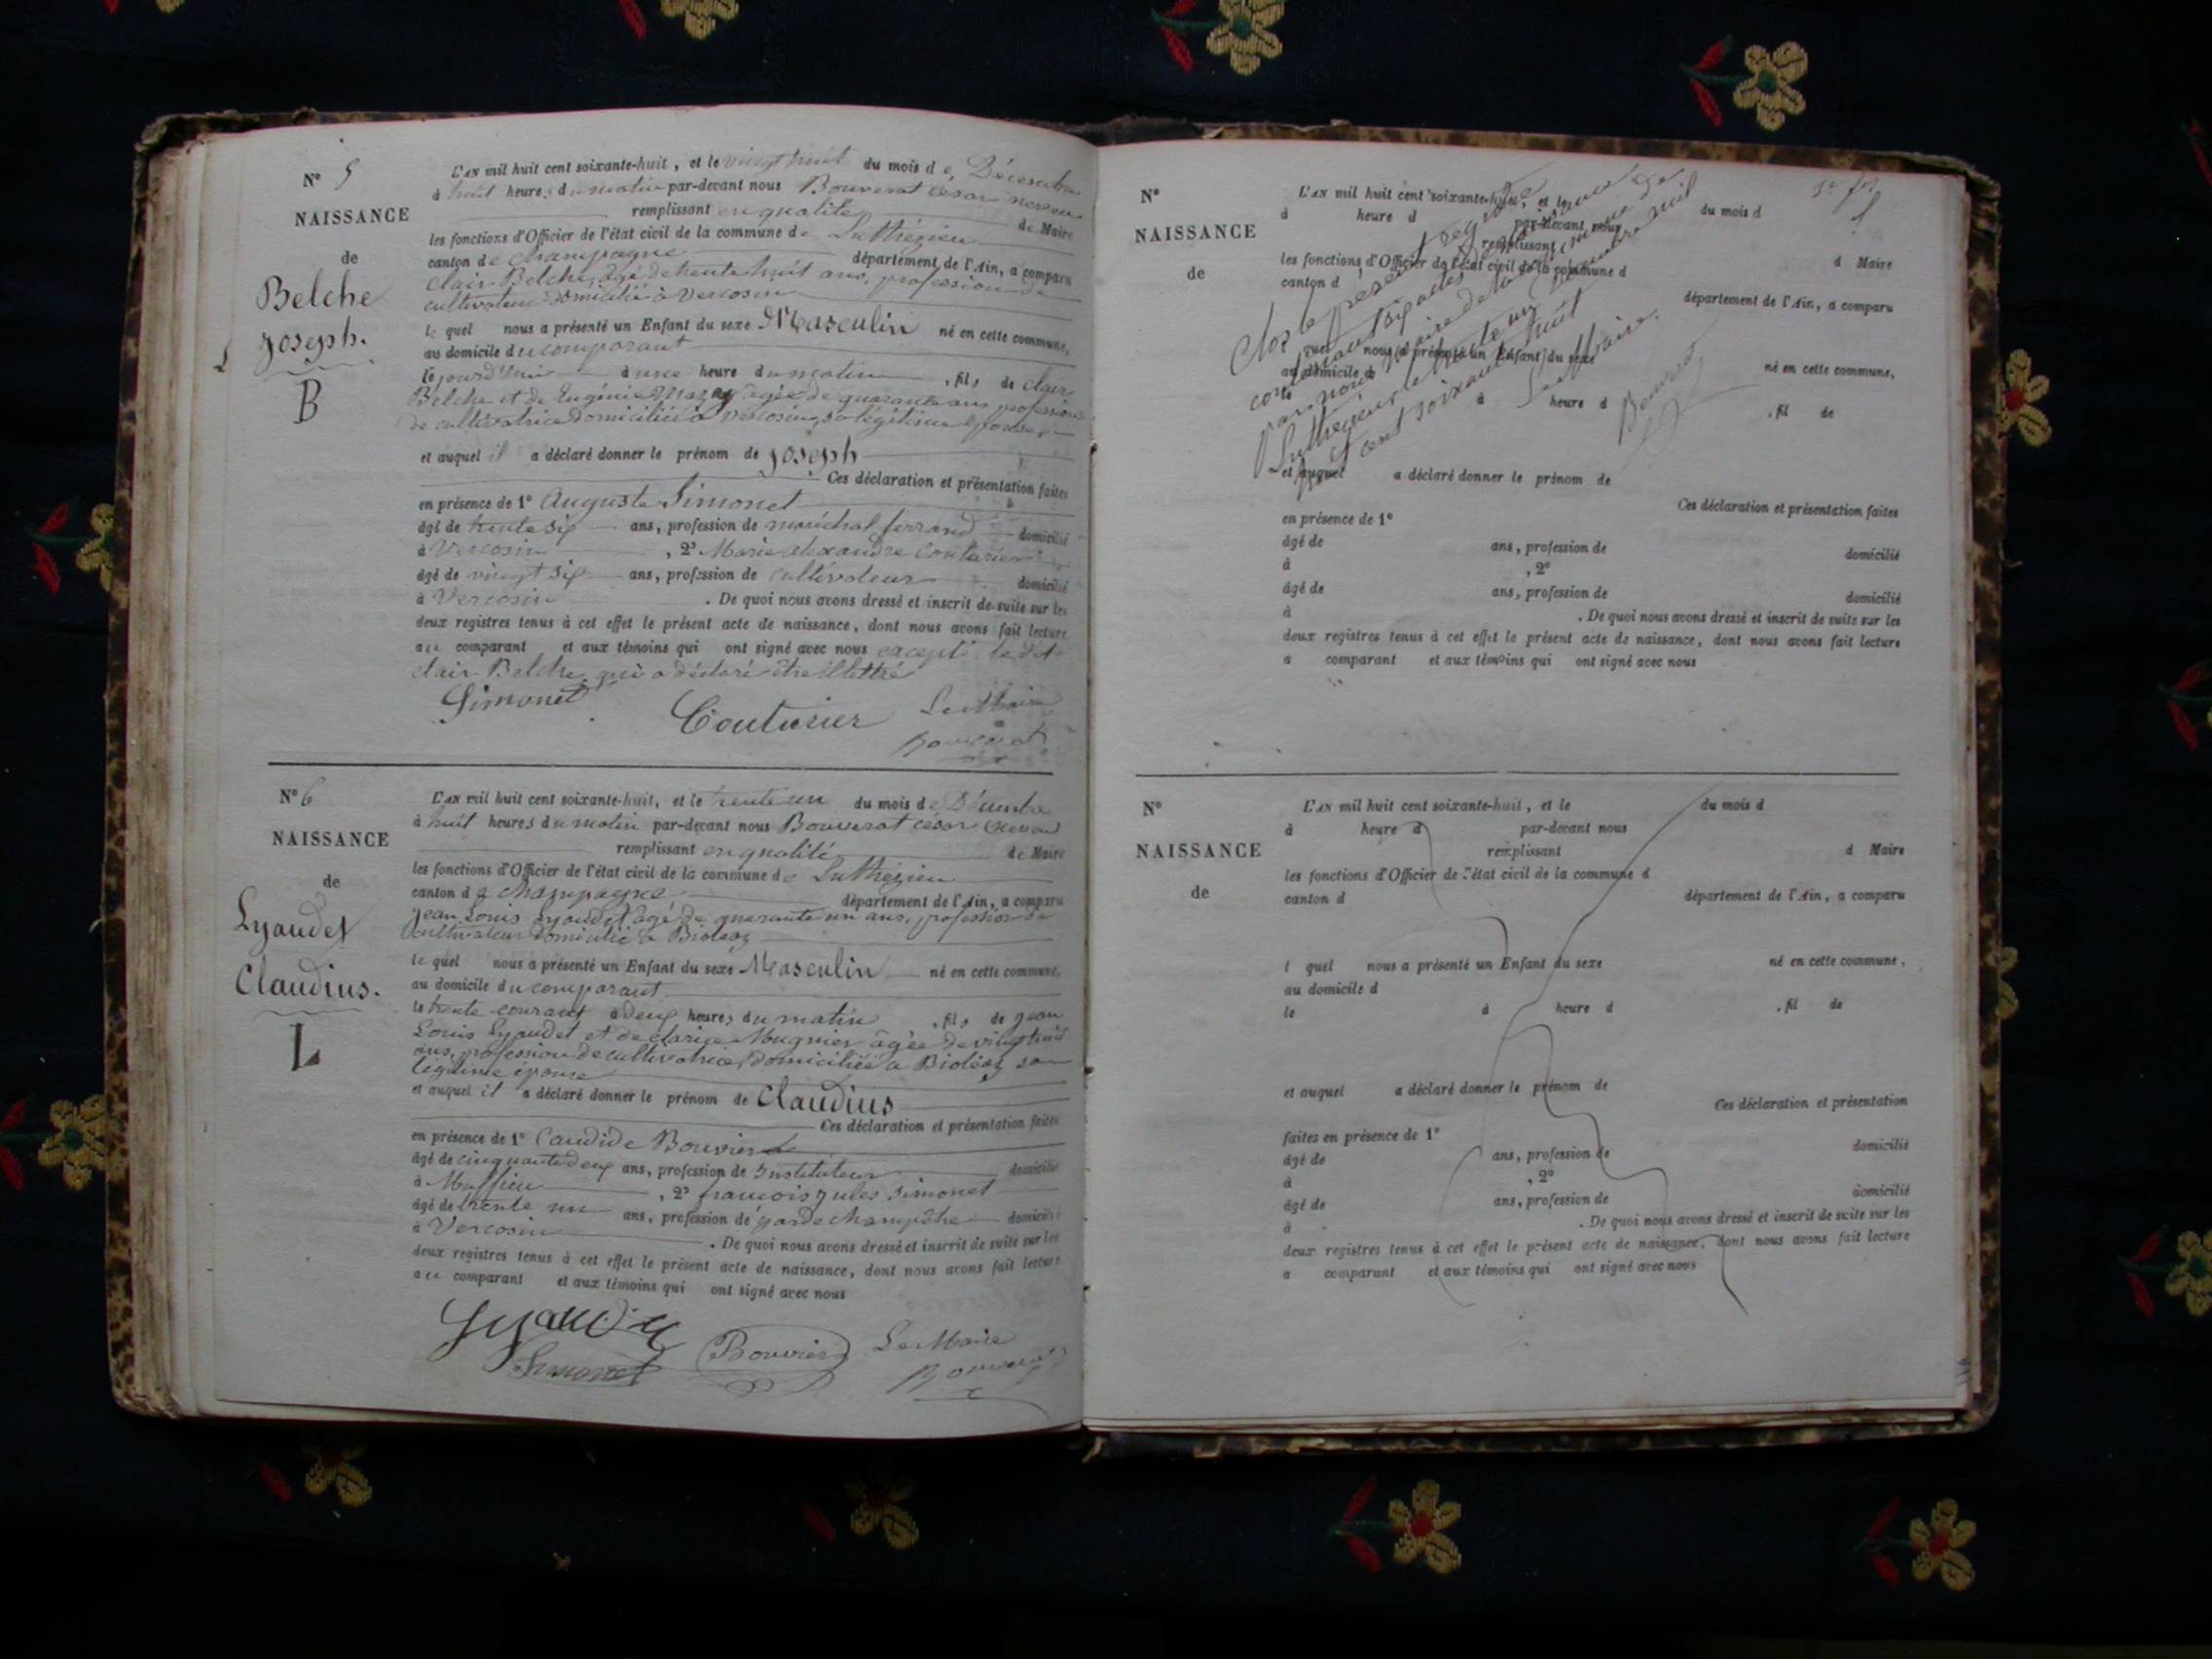 N° 5
NAISSANCE
de
Belche
Joseph.
B
L'AN mil huit cent soixante-huit, et le vingt huit du mois de Décembre
à huit heures du matin par-devant nous Bouverat César neveu
remplissant en qualité de Maire
les fonctions d'Officier de l'état civil de la commune de Luthézieu
canton de Champagne département de l'Ain, a comparu
Clair Belche, âgé de trente huit ans, profession de
cultivateur domicilié à Vercosin
le quel nous a présenté un Enfant du sexe Masculin né en cette commune,
au domicile du comparant
le jourd'hui à une heure du matin, fils de Clair
Belche et de Eugénie âgée de quarante ans, profession
de cultivatrice domiciliée à Vercosin, sa légitime épouse,
et auquel il a déclaré donner le prénom de Joseph
Ces déclaration et présentation faites
en présence de 1° Auguste Simonet
âgé de trente six ans, profession de maréchal ferrand domicilié
à Vercosin, 2° Marie Alexandre Couturier
âgé de vingt six ans, profession de cultivateur domicilié
à Vercosin. De quoi nous avons dressé et inscrit de suite sur les
deux registres tenus à cet effet le présent acte de naissance, dont nous avons fait lecture
au comparant et aux témoins qui ont signé avec nous excepté le dit
Clair Belche qui a déclaré être illettré
Simonet Couturier Le Maire
Bouverat
N° 6
NAISSANCE
de
Lyaudet
Claudius.
L
L'AN mil huit cent soixante-huit, et le trente un du mois de Décembre
à huit heures du matin par-devant nous Bouverat César neveu
remplissant en qualité de Maire
les fonctions d'Officier de l'état civil de la commune de Luthézieu
canton de Champagne département de l'Ain, a comparu
Jean Louis Lyaudet âgé de quarante un ans, profession de
cultivateur domicilié à Bioléaz
le quel nous a présenté un Enfant du sexe Masculin né en cette commune,
au domicile du comparant
le trente courant à deux heures du matin, fils de Jean
Louis Lyaudet et de Clarice Mugnier âgée de vingt huit
ans, profession de cultivatrice, domiciliée à Bioléaz sa
légitime épouse
et auquel il a déclaré donner le prénom de Claudius
Ces déclaration et présentation faites
en présence de 1° Candide Bouvier
âgé de cinquante deux ans, profession de Instituteur domicilié
à Mussieu, 2° François Jules Simonet
âgé de trente un ans, profession de garde champêtre domicilié
à Vercosin. De quoi nous avons dressé et inscrit de suite sur les
deux registres tenus à cet effet le présent acte de naissance, dont nous avons fait lecture
au comparant et aux témoins qui ont signé avec nous
Lyaudet
Simonet Bouvier Le Maire
Bouverat
N°
NAISSANCE
de
L'AN mil huit cent soixante-huit, et le du mois d
à heure d par-devant nous
remplissant d Maire
les fonctions d'Officier de l'état civil de la commune d
canton d département de l'Ain, a comparu
quel nous a présenté un Enfant du sexe né en cette commune,
au domicile d
à heure d , fil de
et auquel a déclaré donner le prénom de
Ces déclaration et présentation faites
en présence de 1°
âgé de ans, profession de domicilié
à , 2°
âgé de ans, profession de domicilié
à . De quoi nous avons dressé et inscrit de suite sur les
deux registres tenus à cet effet le présent acte de naissance, dont nous avons fait lecture
a comparant et aux témoins qui ont signé avec nous
Clos le présent registre
contenant six actes
par nous Maire de la commune de
Luthézieu le trente un Décembre mil
huit cent soixante huit
Le Maire
Bouverat
N°
NAISSANCE
de
L'AN mil huit cent soixante-huit, et le du mois d
à heure d par-devant nous
remplissant d Maire
les fonctions d'Officier de l'état civil de la commune d
canton d département de l'Ain, a comparu
l quel nous a présenté un Enfant du sexe né en cette commune,
au domicile d
le à heure d , fil de
et auquel a déclaré donner le prénom de
Ces déclaration et présentation
faites en présence de 1°
âgé de ans, profession de domicilié
à , 2°
âgé de ans, profession de domicilié
à . De quoi nous avons dressé et inscrit de suite sur les
deux registres tenus à cet effet le présent acte de naissance, dont nous avons fait lecture
a comparant et aux témoins qui ont signé avec nous